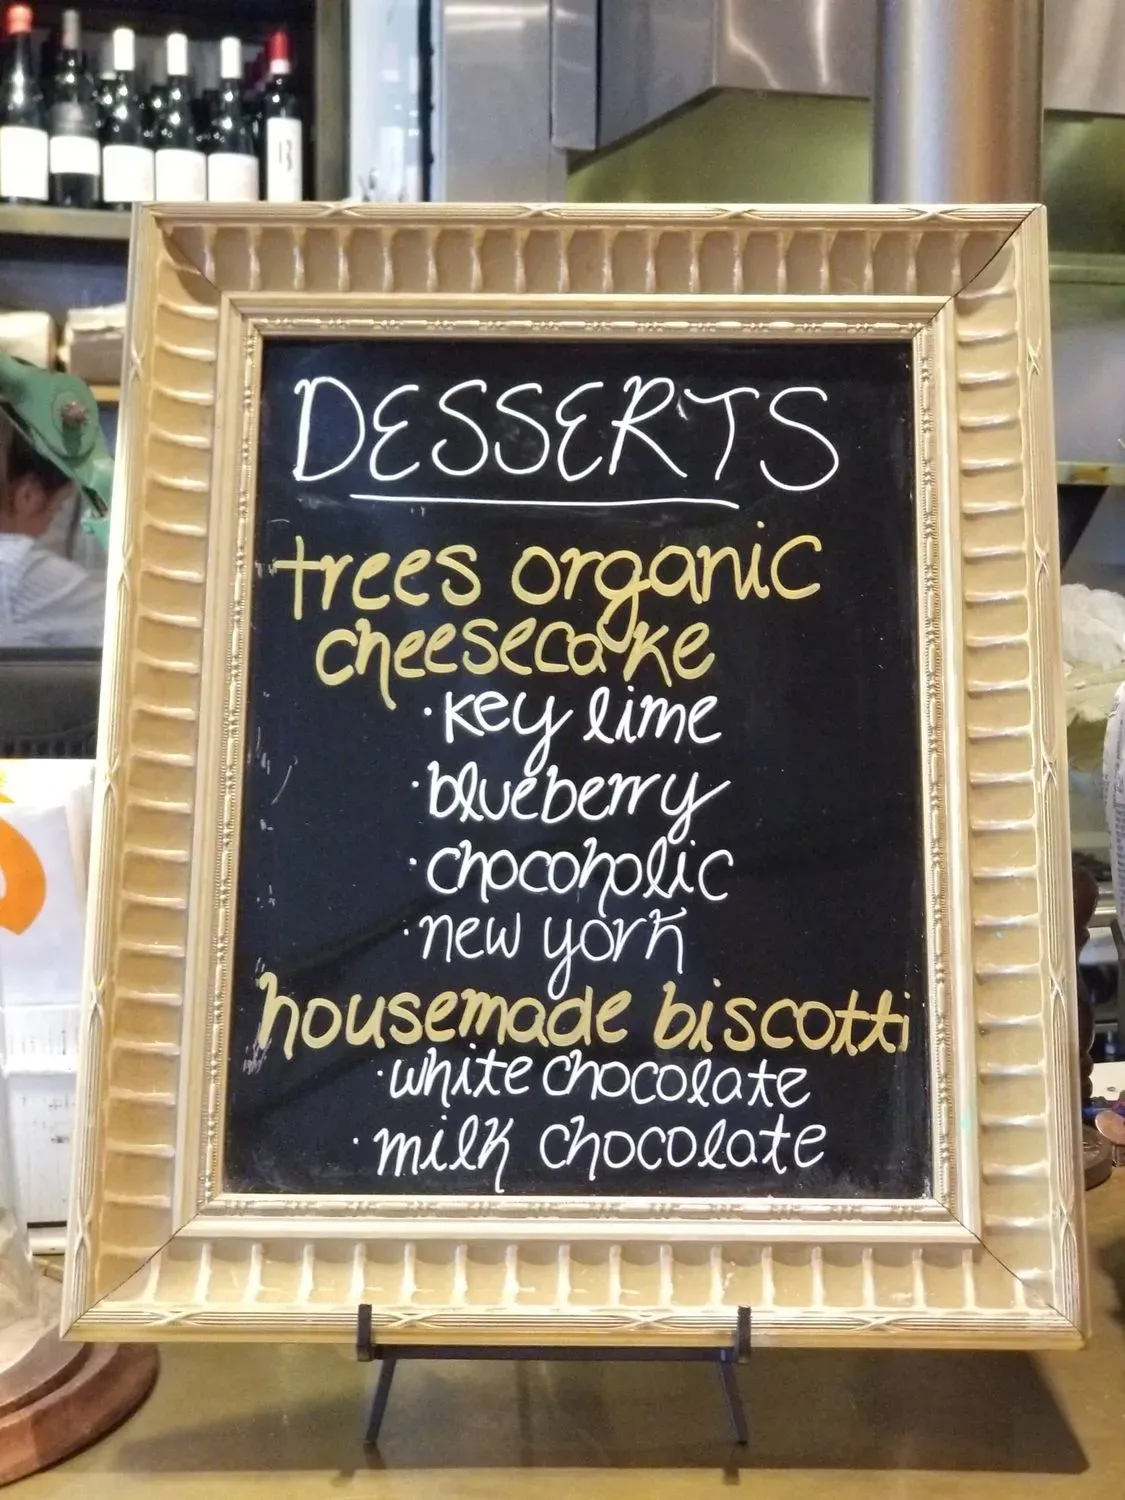 DESSERTS
trees organic
cheesecake
· key lime
· blueberry
· chocoholic
· new york
housemade biscotti
· white chocolate
· milk chocolate